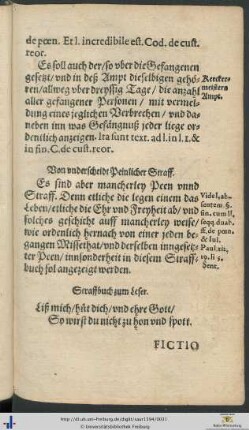 de pœn. Et l. incredibile est. Cod. de cust.
reor.
Es soll auch der/so vber die Gefangenen
gesetzt/vnd in deß Ampt dieselbigen gehö-
ren/allweg vber dreyssig Tage/die anzahl
aller gefangener Personen/mit vermel-
dung eines jeglichen Verbrechen/vnd da-
neben inn was Gefängnuß jeder liege or-
denlich anzeigen. Ita sunt text. ad l. in l. 1. &
in fin. C. de cust. reor.
Kercker-
meistern
Ampt.
Von vnderscheidt Peinlicher Straff.
Es sind aber mancherley Peen vnnd
Straff. Denn etliche die legen einem das
Leben/etliche die Ehr vnd Freyheit ab/vnd
solches geschicht auff mancherley weise/
wie ordenlich hernach von einer jeden be-
gangen Missethat/vnd derselben inngesetz-
ter Peen/innsonderheit in diesem Straff-
buch sol angezeigt werden.
Straffbuch zum Leser.
Liß mich/hüt dich/vnd ehre Gott/
So wirst du nicht zu hon vnd spott.
FICTIO